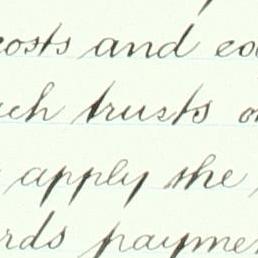 costs and co
ch trusts o
apply the
rds payme